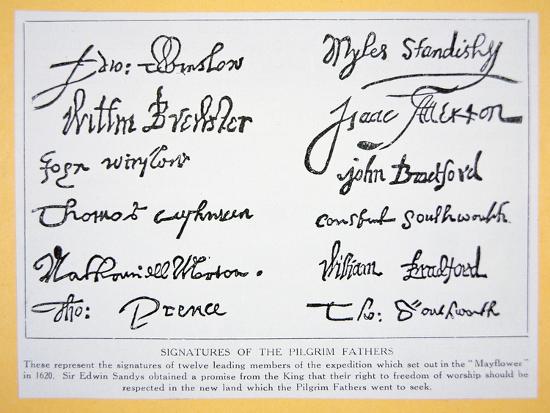 Edw: Winslow
Willm Brewster
John Winslow
Thomas Cushman
Nathaniell Morton.
Tho: Prence
Myles Standish
Isaac Allerton
John Bradford
Constant Southworth
William Bradford
Tho: Southworth
SIGNATURES OF THE PILGRIM FATHERS
These represent the signatures of twelve leading members of the expedition which set out in the "Mayflower"
in 1620. Sir Edwin Sandys obtained a promise from the King that their right to freedom of worship should be
respected in the new land which the Pilgrim Fathers went to seek.